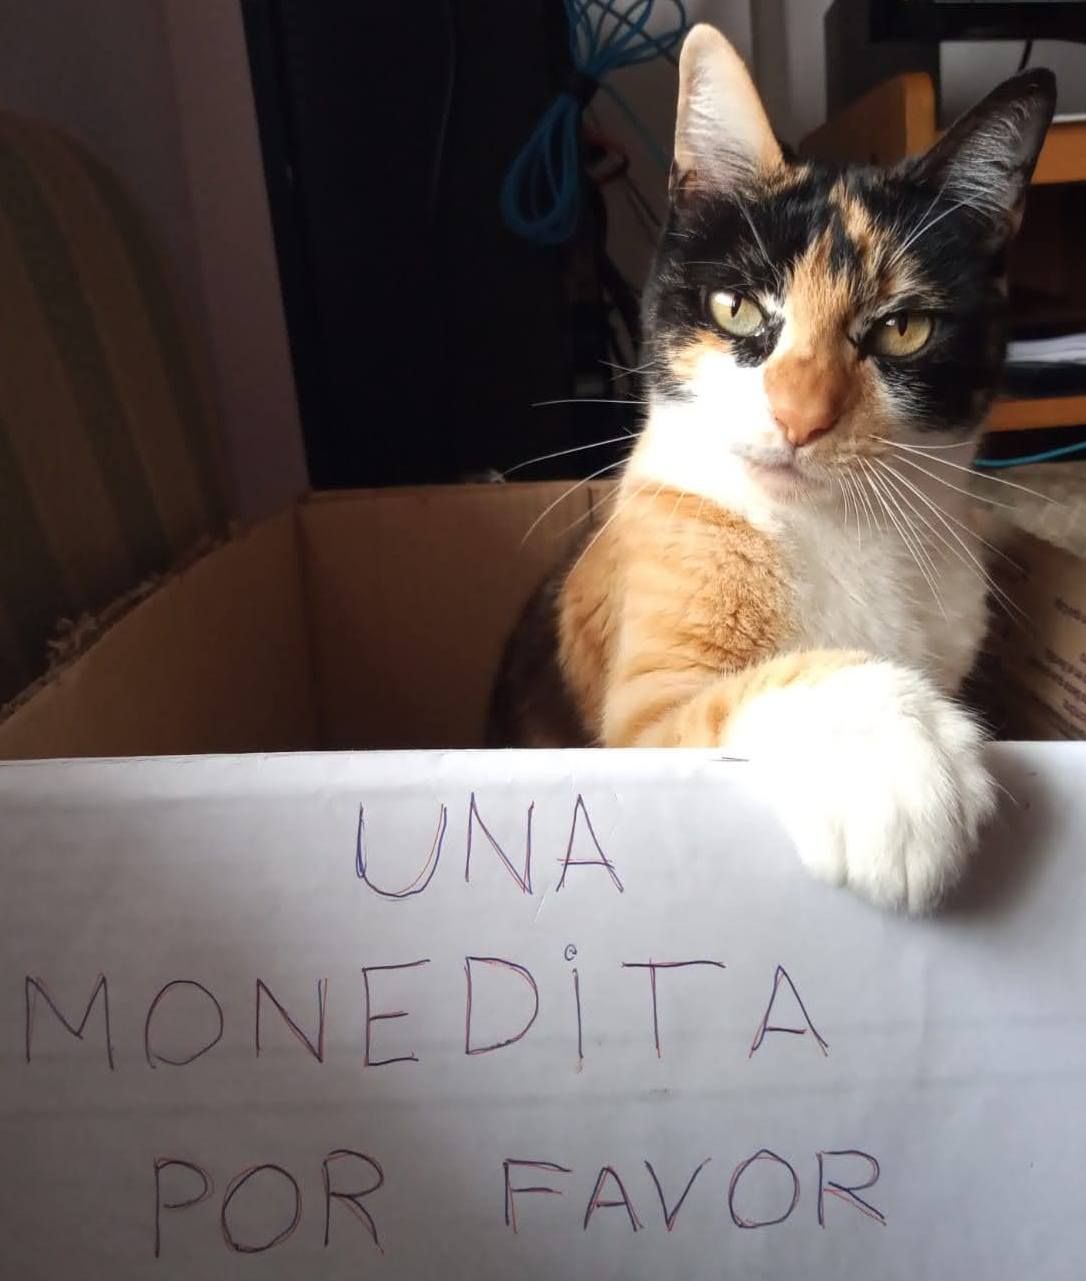 UNA
MONEDiTA
POR FAVOR